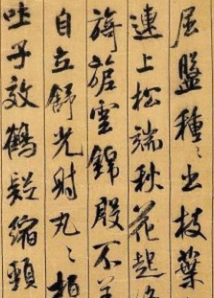 屈盤種〻出枝葉
連上松端秋花起
旖旎雲錦殷不羞
自立舒光射丸〻柏
吐子效鶴疑縮頸